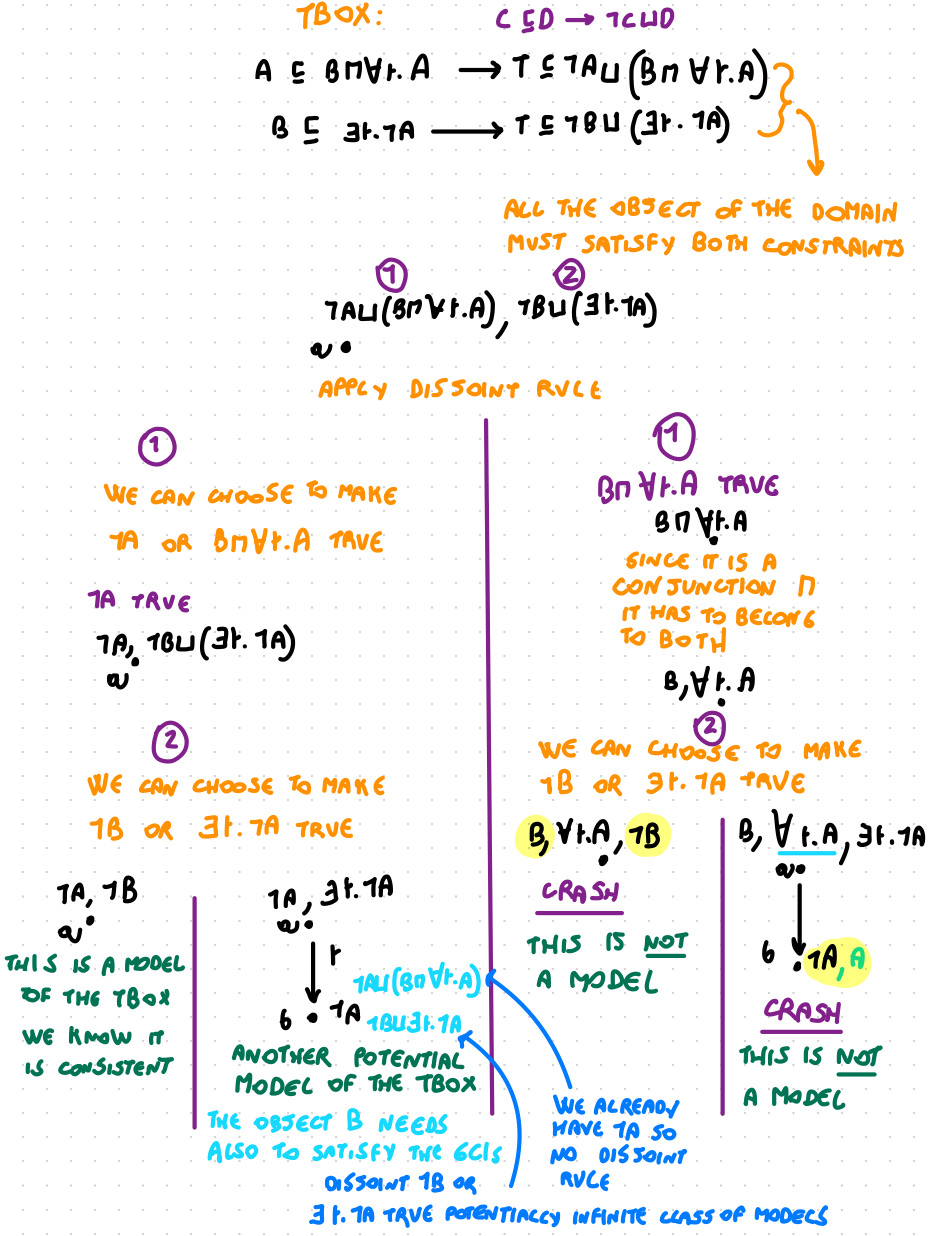 TBOX:
C ⊑ D → ¬C ⊔ D
A ⊑ B ⊓ ∀r.A → T ⊑ ¬A ⊔ (B ⊓ ∀r.A)
B ⊑ ∃r.¬A → T ⊑ ¬B ⊔ (∃r.¬A)
ALL THE OBJECT OF THE DOMAIN
MUST SATISFY BOTH CONSTRAINTS
1 2
¬A ⊔ (B ⊓ ∀r.A), ¬B ⊔ (∃r.¬A)
a
APPLY DISJOINT RULE
1
WE CAN CHOOSE TO MAKE
¬A OR B ⊓ ∀r.A TRUE
¬A TRUE
¬A, ¬B ⊔ (∃r.¬A)
a
2
WE CAN CHOOSE TO MAKE
¬B OR ∃r.¬A TRUE
¬A, ¬B
a
THIS IS A MODEL
OF THE TBOX
WE KNOW IT
IS CONSISTENT
¬A, ∃r.¬A
a
r
¬A ⊔ (B ⊓ ∀r.A)
b ¬A
¬B ⊔ ∃r.¬A
ANOTHER POTENTIAL
MODEL OF THE TBOX
THE OBJECT B NEEDS
ALSO TO SATISFY THE GCIS
DISJOINT ¬B OR
∃r.¬A TRUE POTENTIALLY INFINITE CLASS OF MODELS
WE ALREADY
HAVE ¬A SO
NO DISJOINT
RULE
1
B ⊓ ∀r.A TRUE
B ⊓ ∀r.A
SINCE IT IS A
CONJUNCTION ⊓
IT HAS TO BELONG
TO BOTH
B, ∀r.A
2
WE CAN CHOOSE TO MAKE
¬B OR ∃r.¬A TRUE
B, ∀r.A, ¬B
CRASH
THIS IS NOT
A MODEL
B, ∀r.A, ∃r.¬A
a
b ¬A, A
CRASH
THIS IS NOT
A MODEL